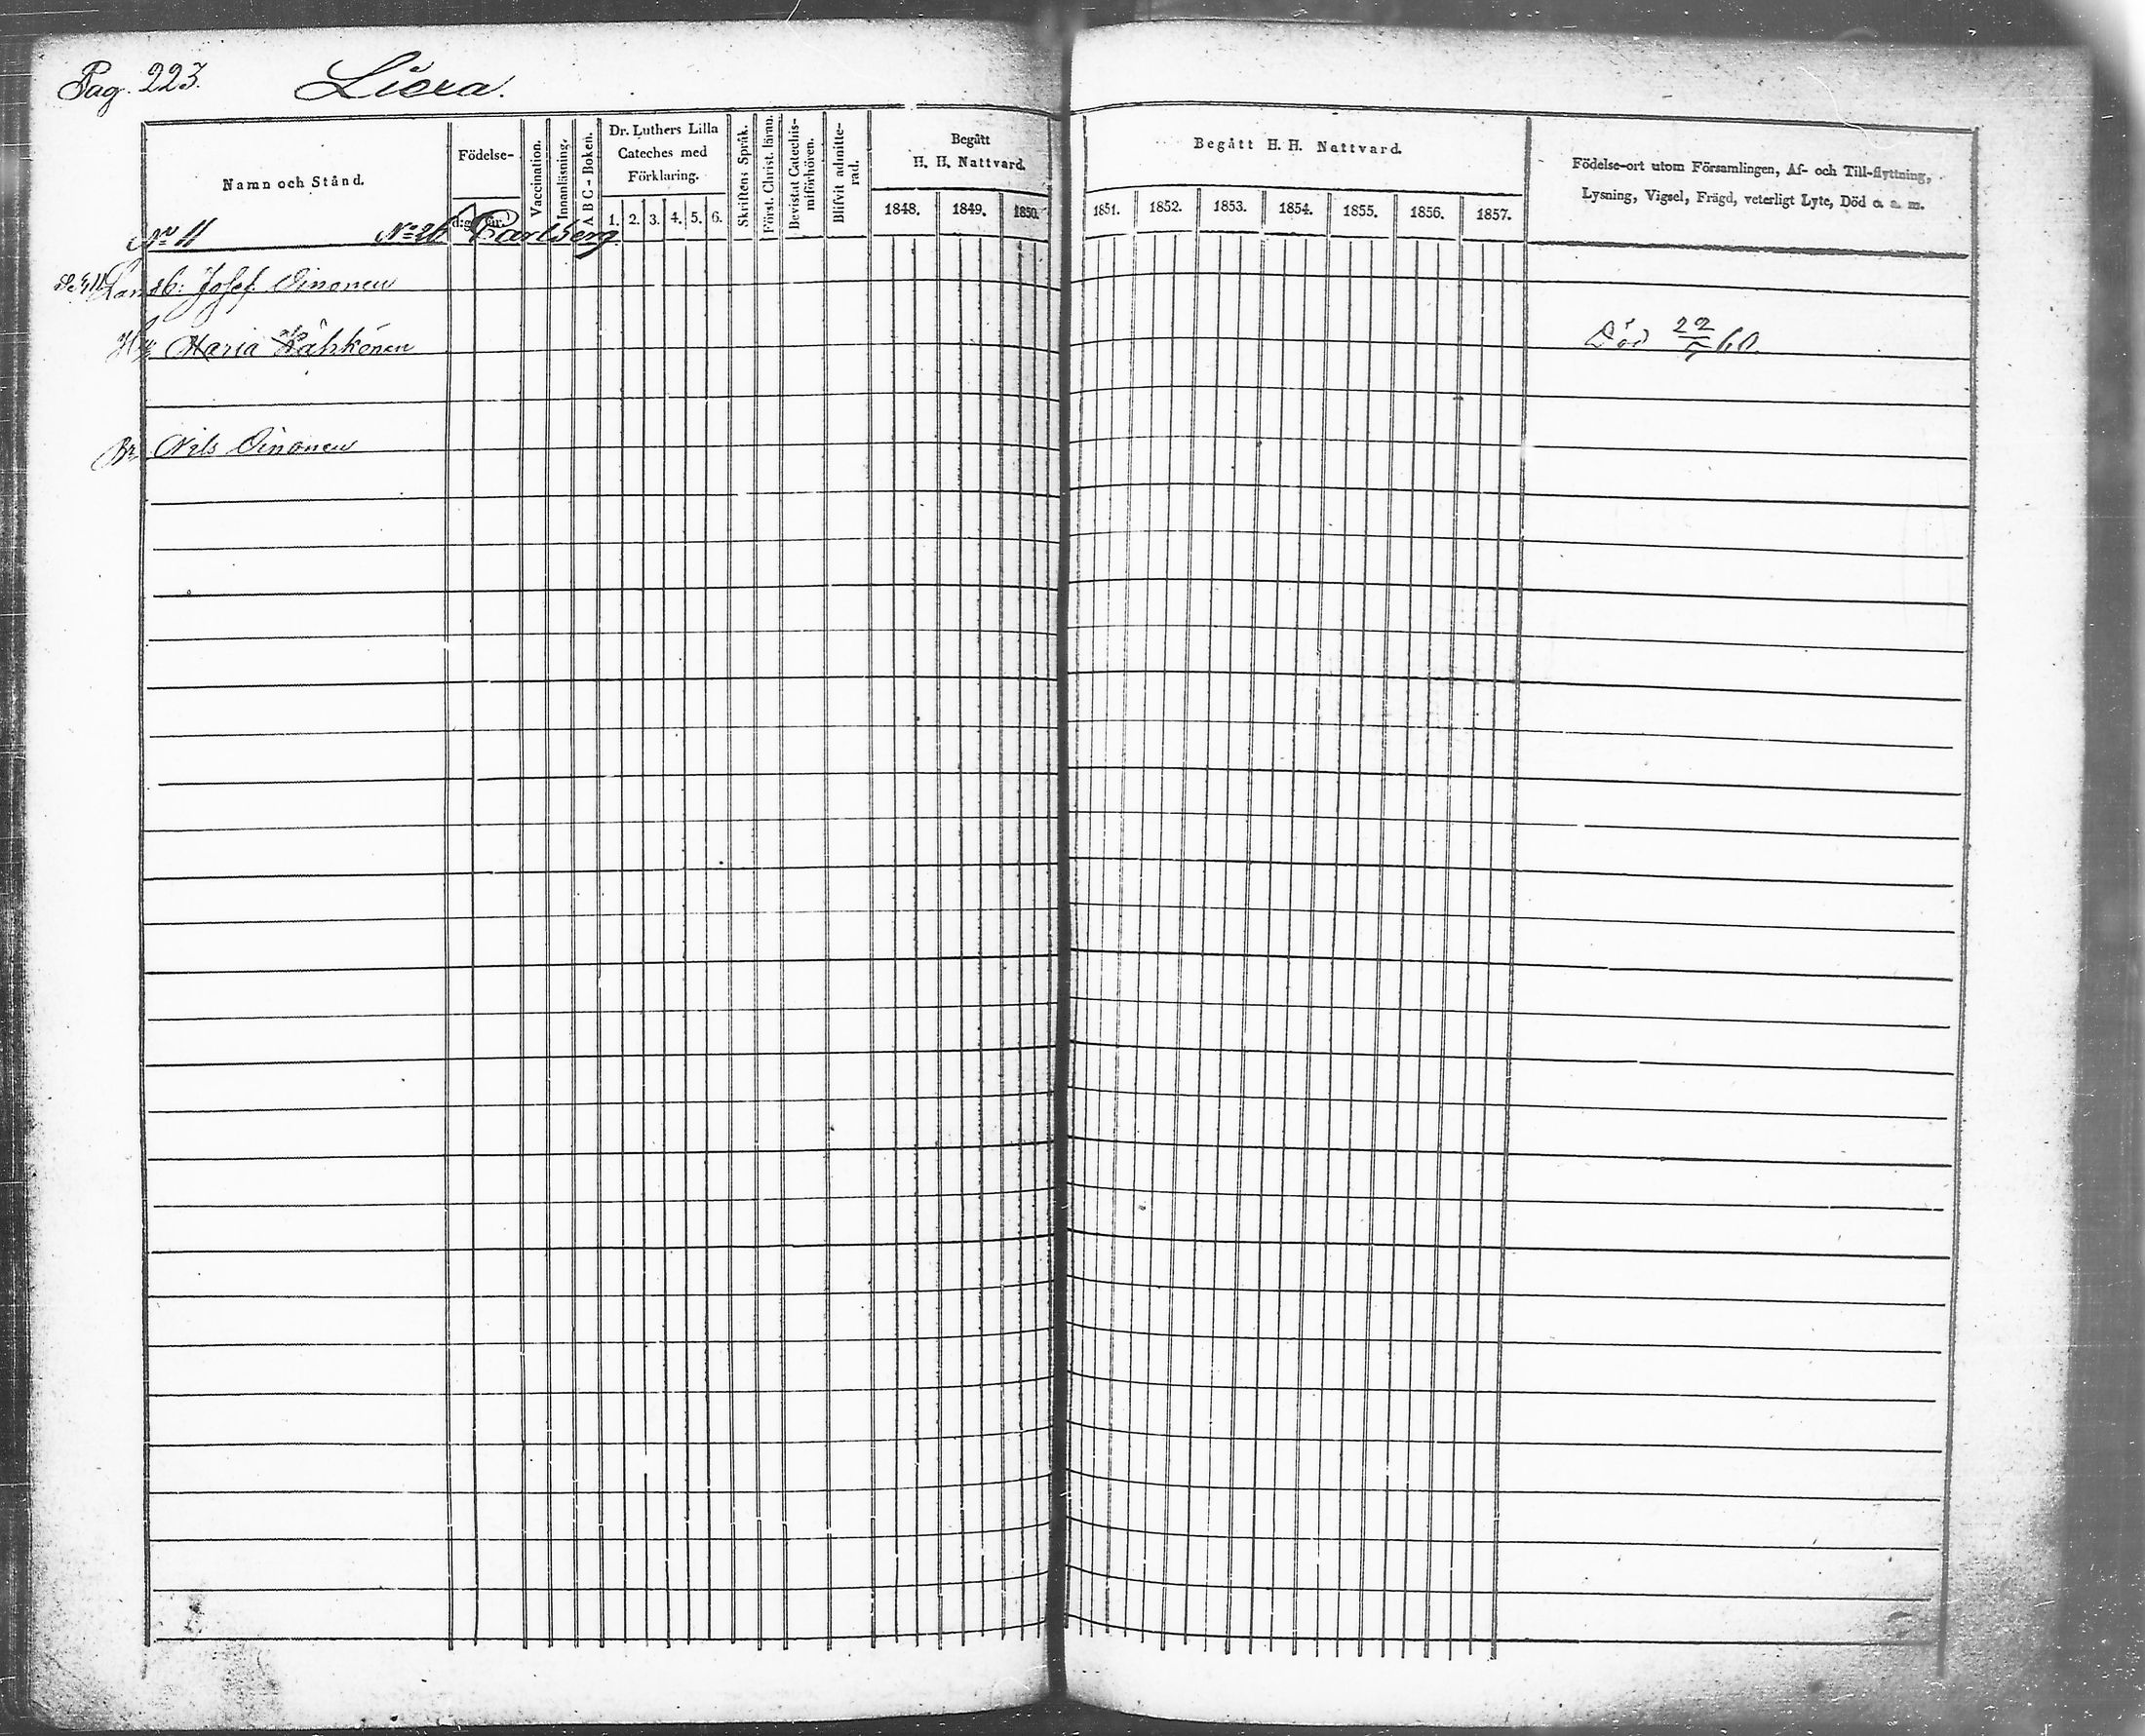 Pag. 223. Liera.
Namn och Stånd.
Födelse-
d:g
år.
Vaccination.
Innanläsning.
A B C - Boken.
Dr. Luthers Lilla
Cateches med
Förklaring.
1. 2. 3. 4. 5. 6.
Skriftens Språk.
Först. Christ. läran.
Bevistat Catechis-
miförhören.
Blifvit admitte-
rad.
Begått
H. H. Nattvard.
1848. 1849. 1850.
Begått H. H. Nattvard.
1851. 1852. 1853. 1854. 1855. 1856. 1857.
Födelse-ort utom Församlingen, Af- och Till-flyttning,
Lysning, Vigsel, Frägd, veterligt Lyte, Död o. s. m.
No 11 No 26 Carlberg
Josef Oinonen
Maria Kähkönen Död 22/5 60.
Br Nils Oinonen